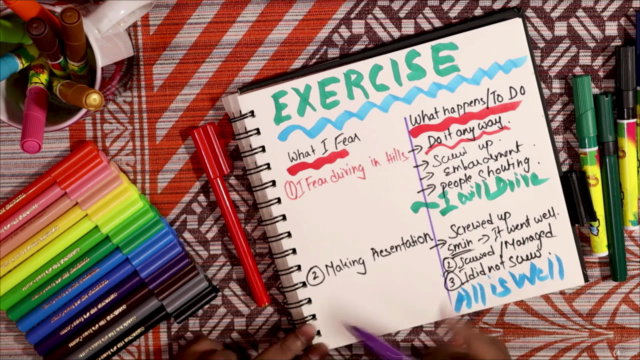 EXERCISE
What I Fear
What happens/To Do
① I Fear driving in Hills
→ Do it any way.
→ Screw up
→ embarrasment.
→ people shouting
I will Drive
② Making Presentation
→ Screwed up
5min → It went well.
② Screwed / Managed
③ I did not screw
All is Well